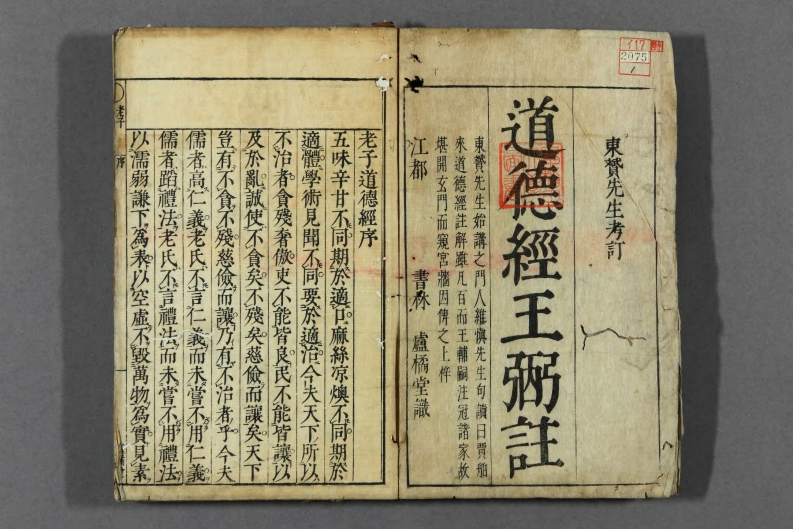 イ17
2075
1
東贇先生考訂
道德經王弼註
東贇先生始講之門人維
先生句讀曰賈舶
來道德經註解雖凡百而王輔嗣注冠諸家故
堪開玄門而窺宮牆因俾之上梓
江都 書林 盧橘堂識
老子道德經序
五味辛甘不同期於適口麻絲凉燠不同期於
適體學術見聞不同要於適治今夫天下所以
不治者貪殘奢傲吏不能皆良民不能皆讓以
及於亂誠使不貪矣不殘矣慈儉而讓矣天下
豈有不貪不殘慈儉而讓乃有不治者乎今夫
儒者高仁義老氏不言仁義而未嘗不用仁義
儒者蹈禮法老氏不言禮法而未嘗不用禮法
以濡弱謙下為表以空虛不毀萬物為實見素
序